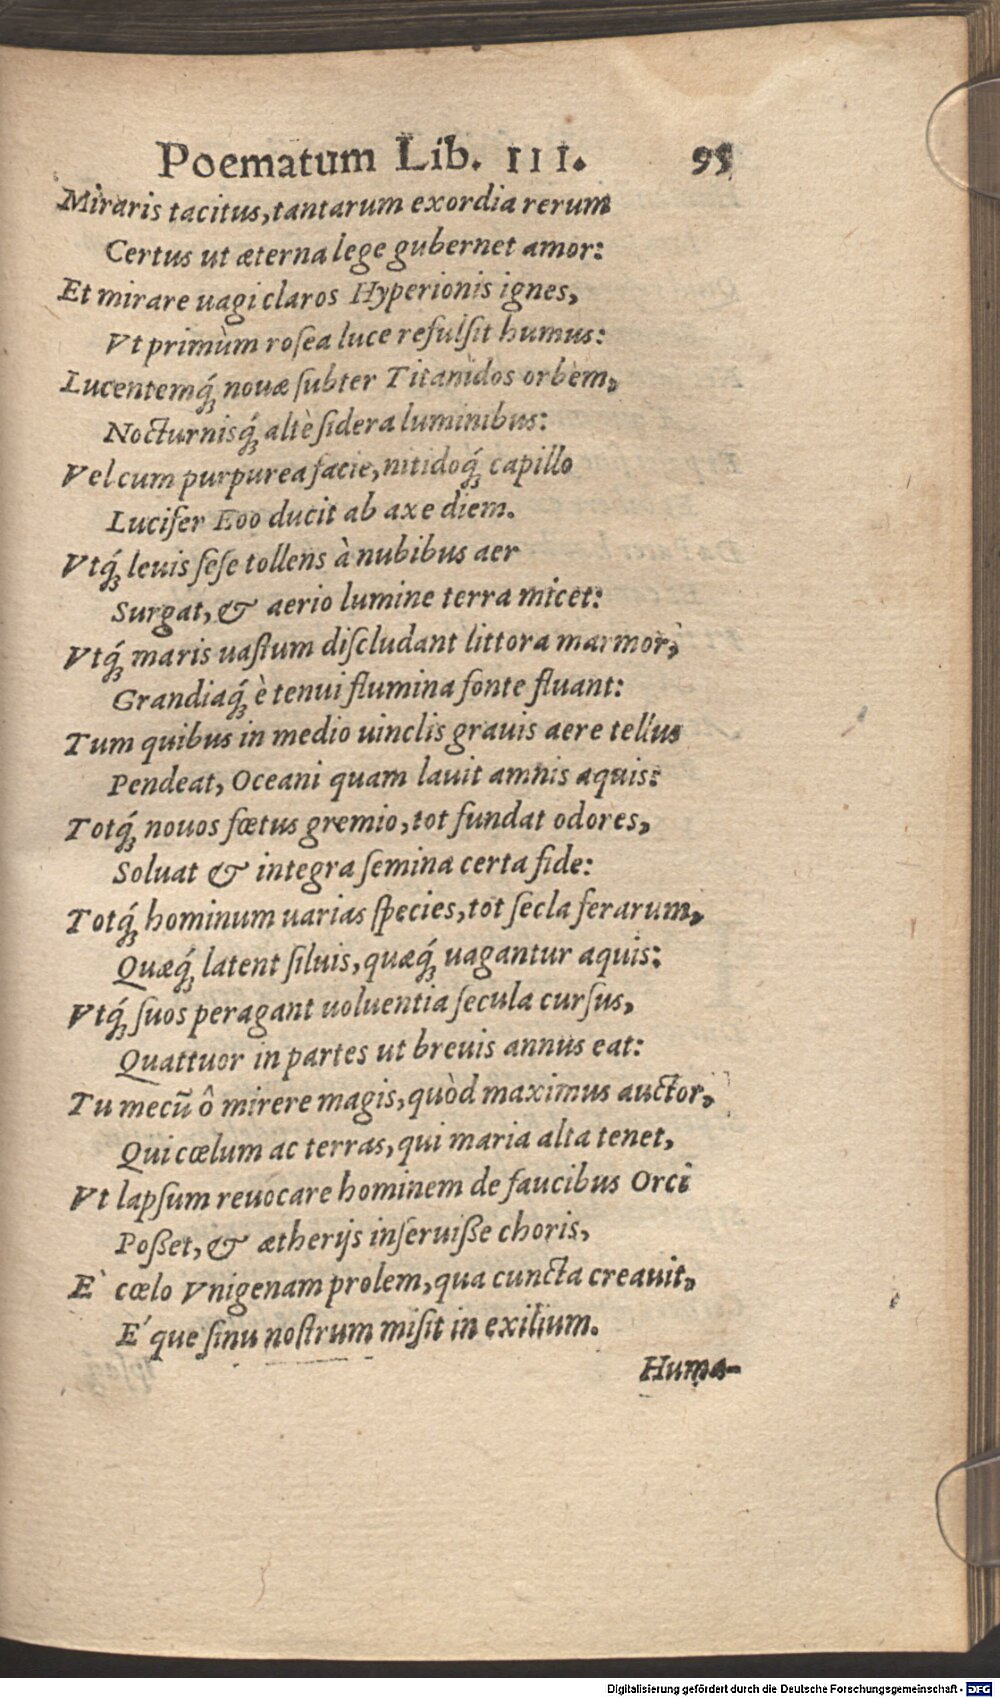 Poematum Lib. III. 95
Miraris tacitus, tantarum exordia rerum
Certus ut æterna lege gubernet amor:
Et mirare uagi claros Hyperionis ignes,
Vt primùm roſea luce refulſit humus:
Lucentemq́; nouæ ſubter Titanidos orbem,
Nocturnisq́; altè ſidera luminibus:
Vel cum purpurea facie, nitidoq́; capillo
Lucifer Eoo ducit ab axe diem.
Vtq́; leuis ſeſe tollens à nubibus aer
Surgat, & aerio lumine terra micet:
Vtq́; maris uaſtum diſcludant littora marmor,
Grandiaq́; è tenui flumina fonte fluant:
Tum quibus in medio uinclis grauis aere tellus
Pendeat, Oceani quam lauit amnis aquis:
Totq́; nouos fœtus gremio, tot fundat odores,
Soluat & integra ſemina certa fide:
Totq́; hominum uarias ſpecies, tot ſecla ferarum,
Quæq́; latent ſiluis, quæq́; uagantur aquis:
Vtq́; ſuos peragant uoluentia ſecula curſus,
Quattuor in partes ut breuis annus eat:
Tu mecū ô mirere magis, quòd maximus auctor,
Qui cœlum ac terras, qui maria alta tenet,
Vt lapſum reuocare hominem de faucibus Orci
Poßet, & ætherijs inſeruiſſe choris,
E` cœlo Vnigenam prolem, qua cuncta creauit,
E´que ſinu noſtrum miſit in exilium.
Huma-
Digitalisierung gefördert durch die Deutsche Forschungsgemeinschaft - DFG